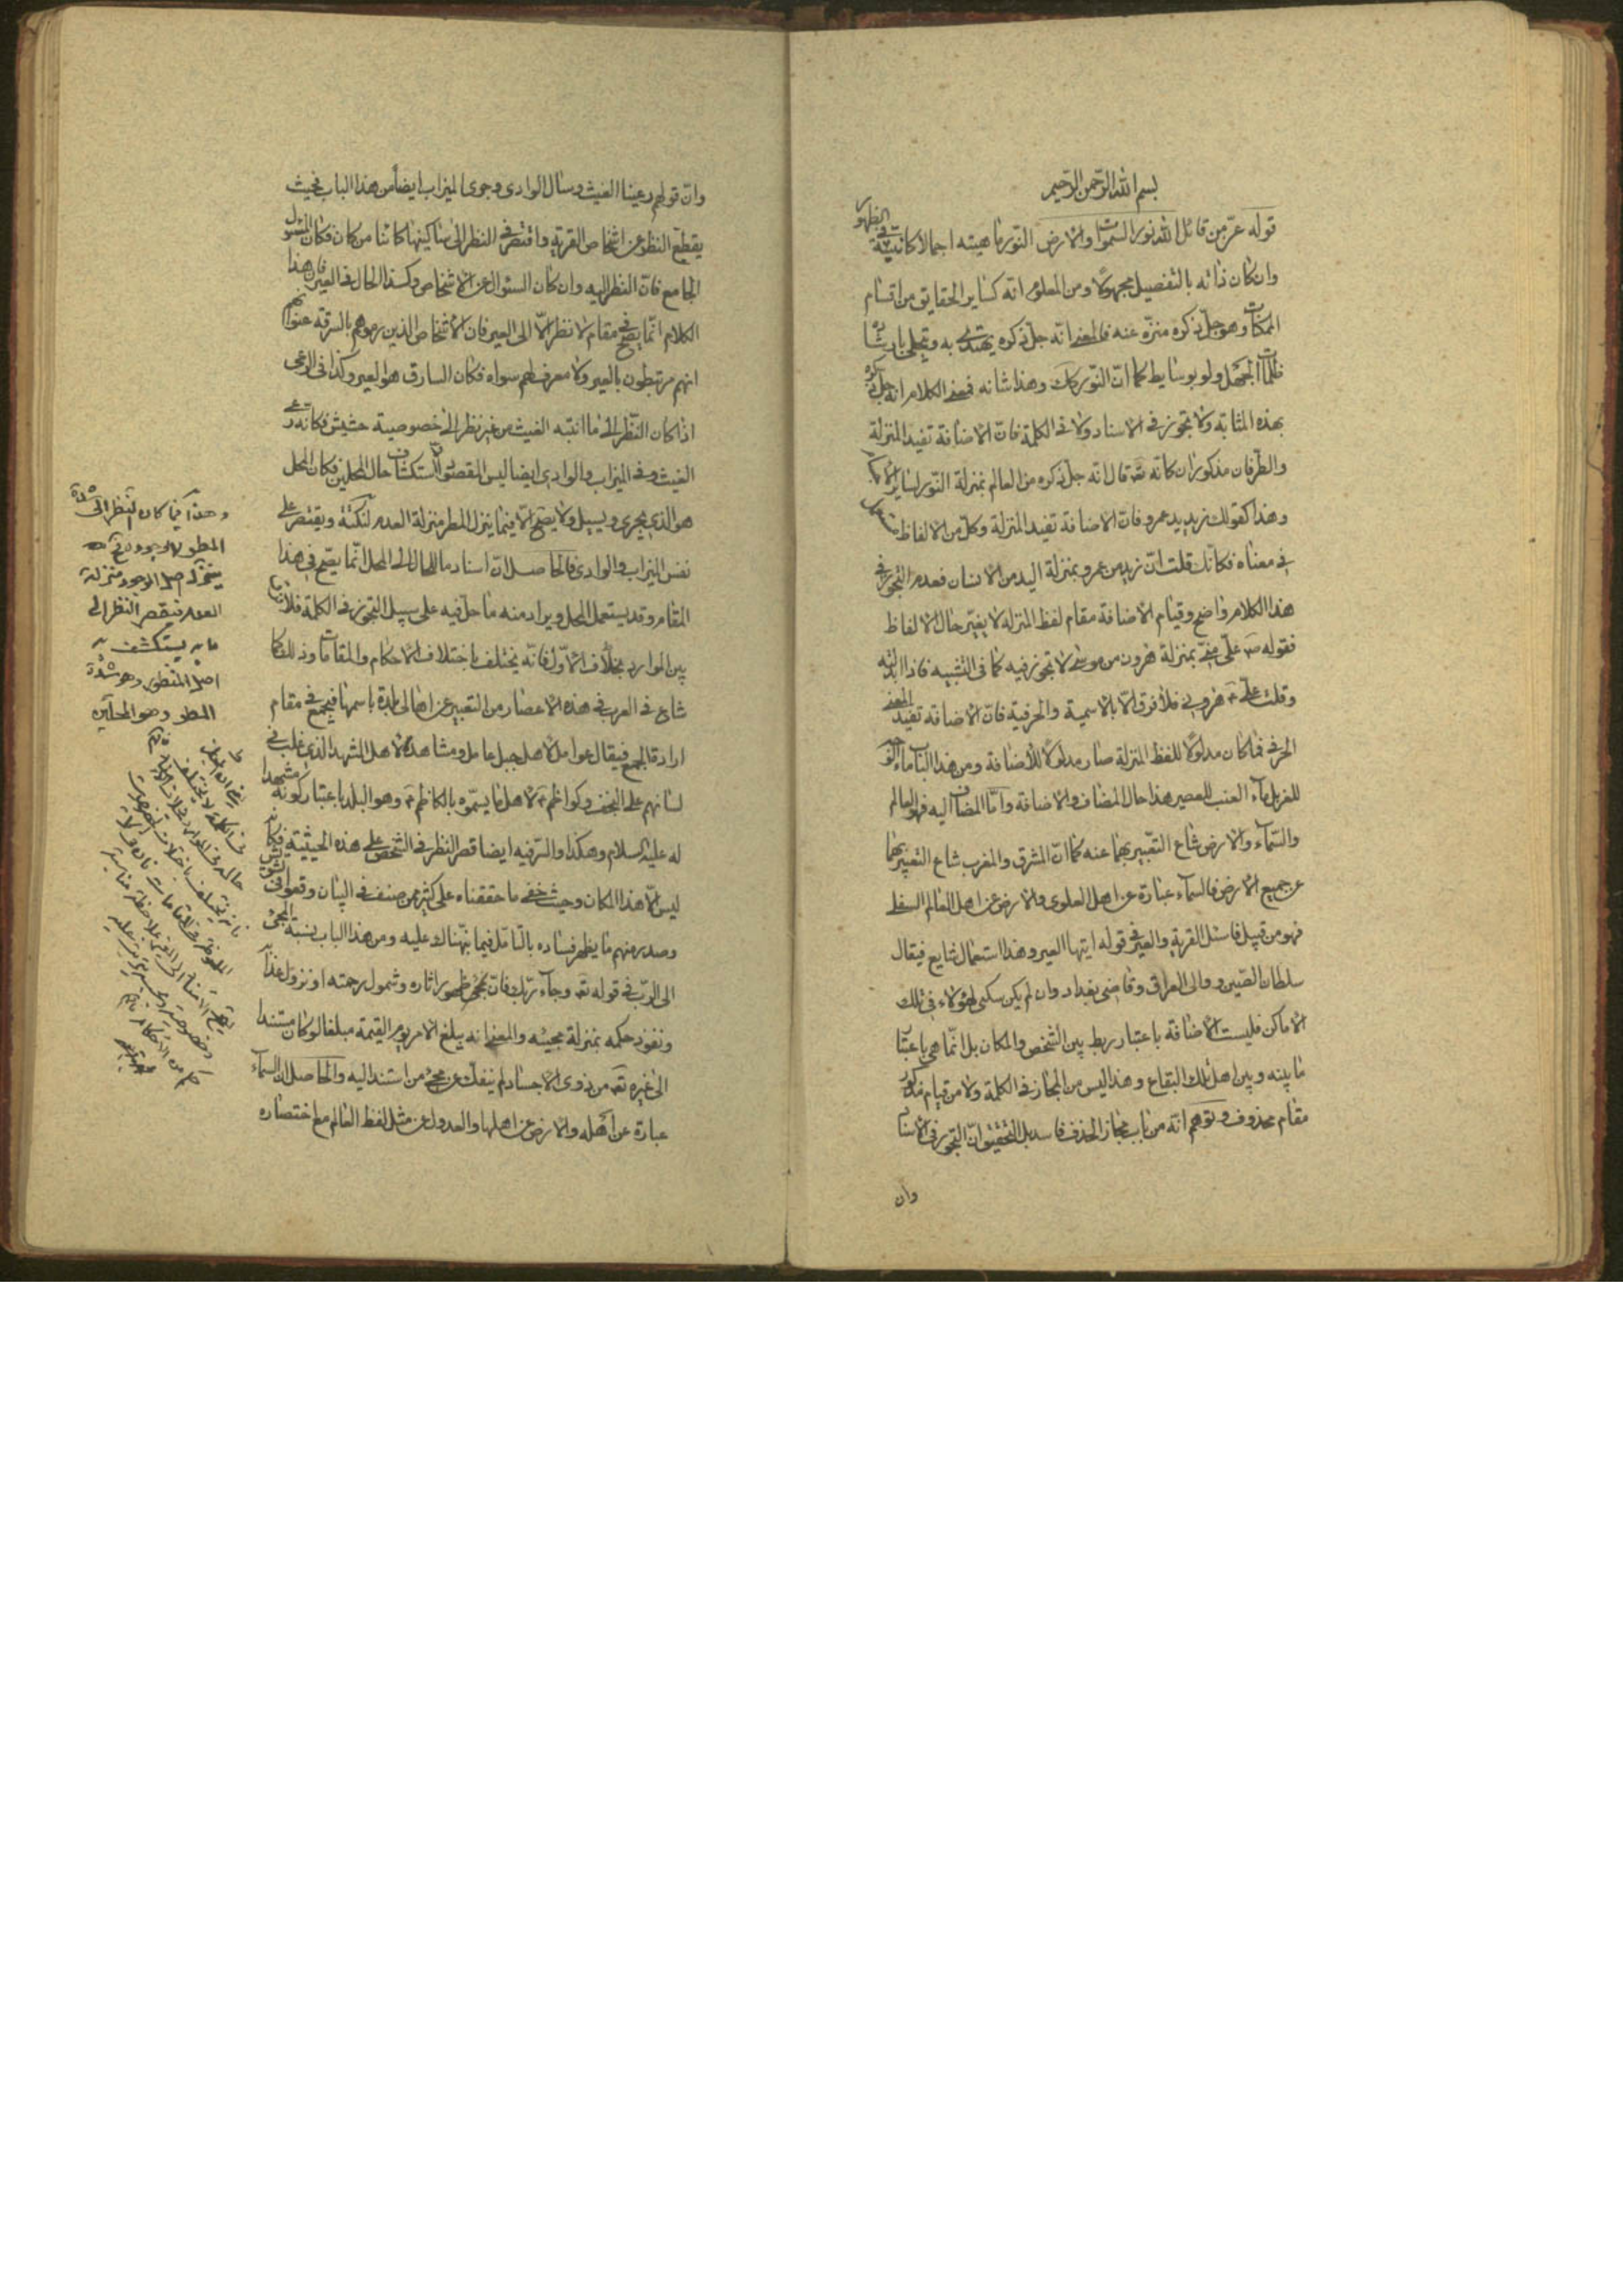 بسم الله الرّحمن الرّحيم
قوله عزّ من قائل الله نور السّموات والارض النّور ماهيته اجمالا كانت بيّنة فى الظهور
وان كان ذاته بالتفصيل مجهولا ومن المعلوم انّه كساير الحقايق من اقسام
الممكنات وهو جلّ ذكره منزّه عنه فالمعنى انّه جلّ ذكره يهتدى به وتجلى بارشاده
ظلمات الجهل ولو بوسايط كما انّ النّور كك وهذا شانه فمعنى الكلام انه جلّ ذكره
بهذه المثابة ولا تجوز فى الاسناد ولا فى الكلمة فانّ الاضافة تفيد المنزلة
والطّرفان مذكوران كانّه تع قال انّه جلّ ذكره من العالم بمنزلة النّور لساير
وهذا كقولك زيد يد عمرو فانّ الاضافة تفيد المنزلة وكلّ من الالفاظ مستعمل
فى معناه فكانّك قلت انّ زيد من عمرو بمنزلة اليد من الانسان فعدم التجوز فى
هذا الكلام واضح وقيام الاضافة مقام لفظ المنزلة لا يغيّر حال الالفاظ
فقوله ص علىّ منّى بمنزلة هرون من موسى لا تجوز فيه كما فى التشبيه فاذا
وقلت علىّ هرونى فلا فرق الّا بالاسمية والحرفية فانّ الاضافة تفيد المعنى
الحرفى فما كان مدلولا للفظ المنزلة صار مدلولا للأضافة ومن هذا الباب ماء
للغربل وماء العنب للعصير هذا حال المضاف والاضافة وامّا المضاف اليه فهو العالم
والسّماء والارض شاع التعبير بهما عنه كما انّ المشرق والمغرب شاع التعبير بهما
عن جميع الارض فالسماء عبارة عن اهل العلوى والارض عن اهل العالم السفلى
فهو من قبيل فاسئل القرية والعير فى قوله ايتها العير وهذا استعمال شايع فيقال
سلطان الصّين ووالى العراق وقاضى بغداد وان لم يكن سكنى لهؤلاء فى تلك
الاماكن فليست الاضافة باعتبار ربط بين الشخص والمكان بل انّما هى باعتبار
ما بينه وبين اهل تلك البقاع وهذا ليس من المجاز فى الكلمة ولا من قيام مذكور
مقام محذوف وتوهّم انّه من باب مجاز الحذف فاسد بل التحقيق انّ التجوز فى الاسناد
وان
وانّ قولهم رعينا الغيث وسال الوادى وجرى الميزاب ايضا من هذا الباب فحيث
يقطع النظر عن اشخاص القرية واقتصر فى النظر الى ساكنيها كائنا من كان فكان المسئول
الجامع فانّ النظر اليه وان كان السئوال عن الاشخاص وكذا الحال فى العير فان هذا
الكلام انّما يصح فى مقام لا نظر الّا الى العير فان الاشخاص الذين رموهم بالسرقة عنوانهم
انهم مرتبطون بالعير ولا معرف لهم سواه فكان السارق هو العير وكذا فى الرعى
اذا كان النّظر الى ما انبته الغيث من غير نظر الى خصوصية حشيش فكانّه رعى
الغيث وفى الميزاب والوادى ايضا ليس المقصود الّا استكشاف حال المحلين فكان المحل
هو الذى يجرى ويسيل ولا يصح الّا فيما ينزل المطر منزلة العدم لنكتة ويقتصر على
نفس الميزاب والوادى فالحاصل انّ اسناد ما للحال الى المحل انّما يصّح فى هذا
المقام وقد يستعمل المحل ويراد منه ما حلّ فيه على سبيل التجوز فى الكلمة فلا
بين الموارد بخلاف الاوّل فانّه يختلف باختلاف الاحكام والمقامات وذلك كما
شاع فى العرب فى هذه الاعصار من التعبير عن اهالى بلدة باسمها فيجمع فى مقام
ارادة الجمع فيقال عوامل لاهل جبل عامل ومشاهدة لاهل المشهد الذى غلب فى
لسانهم على النجف وكواظم لاهل ما يسمّوه بالكاظم وهو البلد باعتبار كونه مشهدا
له عليه السلام وهكذا والسّر فيه ايضا قصر النظر فى الشّخص على هذه الحيثية فكانه
ليس الّا هذا المكان وحيث خفى ما حققناه على كثير ممن صنف فى البيان وقعوا فى
وصدر منهم ما يظهر فساده بالتّامّل فيما نبّهناك عليه ومن هذا الباب نسبة المجئ
الى الربّ فى قوله تع وجاء ربّك فانّ مجئ ظهور اثاره وشمول رحمته او نزول عذابه
ونفوذ حكمه بمنزلة مجيئه والمعنى انه يبلغ الامر يوم القيمة مبلغا لو كان مستندا
الى غيره تع من ذوى الاجساد لم ينفك عن مجئ من استند اليه والحاصل ان السماء
عبارة عن اهله والارض عن اهلها والعدول عن مثل لفظ العالم مع اختصاره
وهذا فيما كان النظر الى شدة
المطر لا وجوده
ينزل اصل الوجود منزلة
العدم فيقصر النظر الى
ما به يستكشف به
اصل المنظور وهو شدة
المطر وهو المحلّين